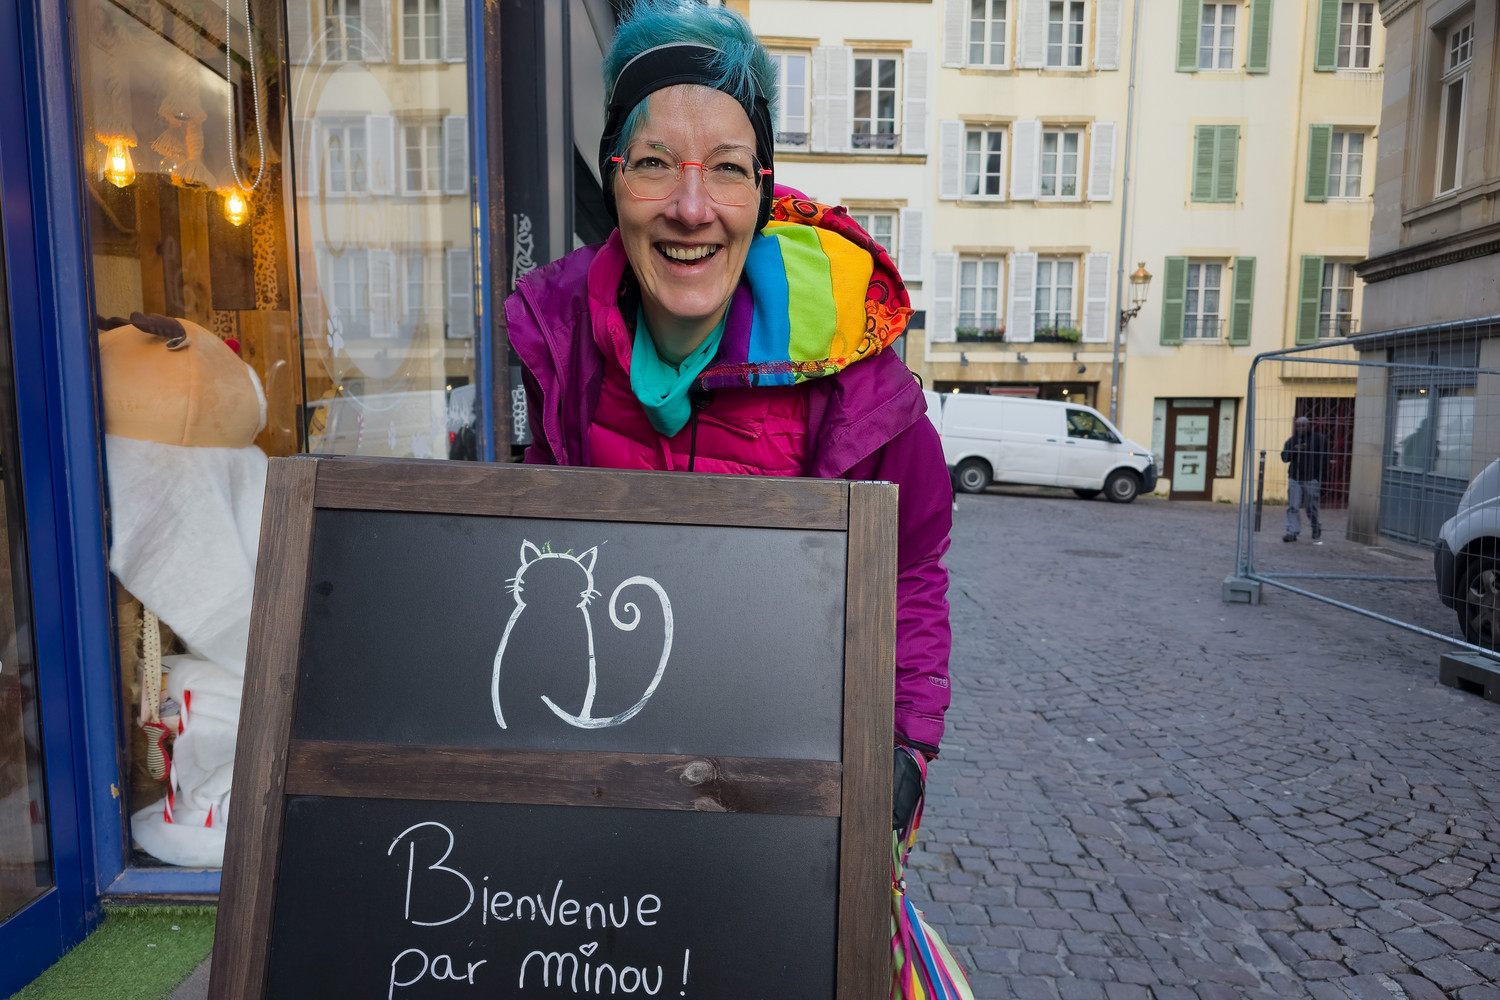 Bienvenue
par minou!